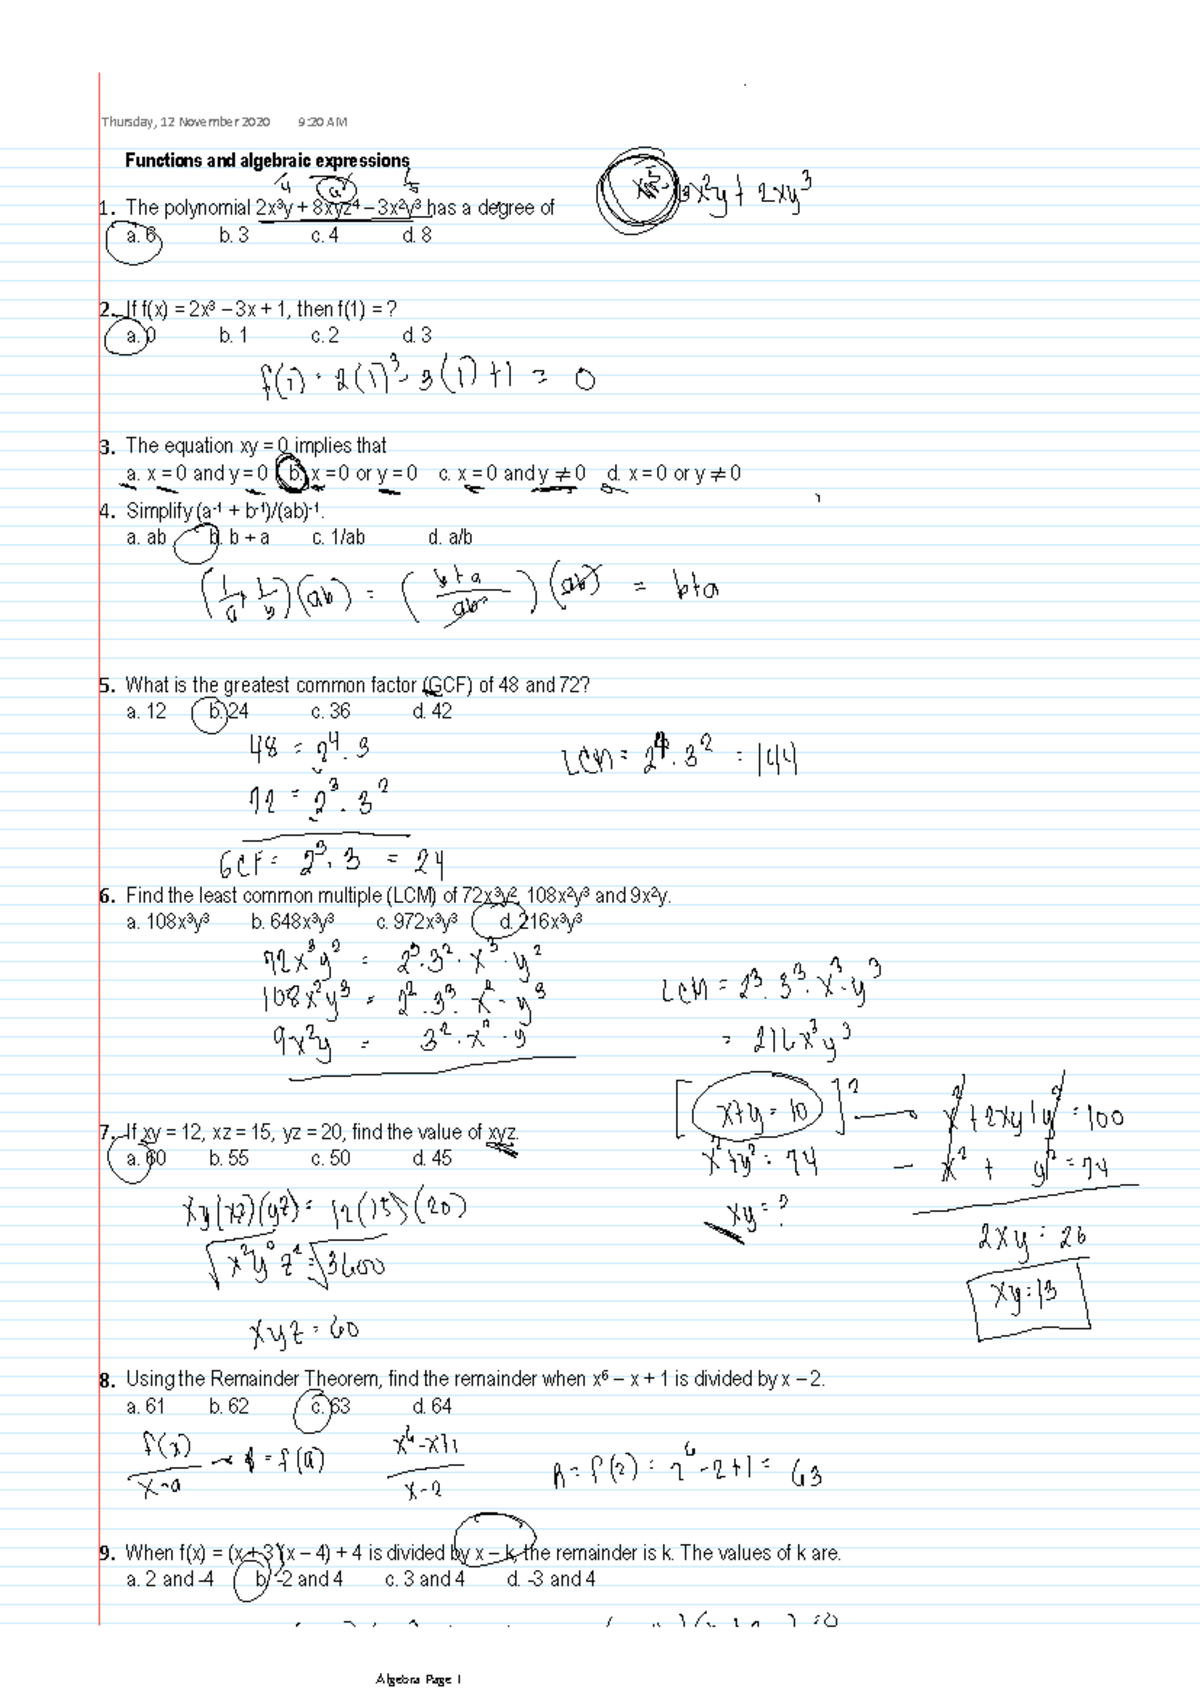 Thursday, 12 November 2020 9:20 AM
Functions and algebraic expressions
x²y + 2xy³
4
1. The polynomial 2x³y + 8xyz⁴ – 3x²y³ has a degree of
a. 6 b. 3 c. 4 d. 8
2. If f(x) = 2x³ – 3x + 1, then f(1) = ?
a. 0 b. 1 c. 2 d. 3
f(1) = 2(1)³ - 3(1) + 1 = 0
3. The equation xy = 0 implies that
a. x = 0 and y = 0 b. x = 0 or y = 0 c. x = 0 and y ≠ 0 d. x = 0 or y ≠ 0
4. Simplify (a⁻¹ + b⁻¹)/(ab)⁻¹.
a. ab b. b + a c. 1/ab d. a/b
(1/a + 1/b)(ab) = (b+a/ab)(ab) = b+a
5. What is the greatest common factor (GCF) of 48 and 72?
a. 12 b. 24 c. 36 d. 42
48 = 2⁴ · 3
LCM = 2⁴ · 3² = 144
72 = 2³ · 3²
GCF = 2³ · 3 = 24
6. Find the least common multiple (LCM) of 72x³y², 108x²y³ and 9x²y.
a. 108x³y³ b. 648x³y³ c. 972x³y³ d. 216x³y³
72x³y² = 2³ · 3² · x³ · y²
108x²y³ = 2² · 3³ · x² · y³
9x²y = 3² · x² · y
LCM = 2³ · 3³ · x³ · y³
= 216x³y³
7. If xy = 12, xz = 15, yz = 20, find the value of xyz.
a. 60 b. 55 c. 50 d. 45
xy(xz)(yz) = 12(15)(20)
√x²y²z² = √3600
xyz = 60
[x+y = 10]² → x² + 2xy + y² = 100
x²+y² = 74 - x² + y² = 74
xy = ?
2xy = 26
xy = 13
8. Using the Remainder Theorem, find the remainder when x⁶ – x + 1 is divided by x – 2.
a. 61 b. 62 c. 63 d. 64
f(x)/x-a → R = f(a) x⁶-x+1/x-2 R = f(2) = 2⁶ - 2 + 1 = 63
9. When f(x) = (x + 3)(x – 4) + 4 is divided by x – k, the remainder is k. The values of k are.
a. 2 and -4 b. -2 and 4 c. 3 and 4 d. -3 and 4
Algebra Page 1